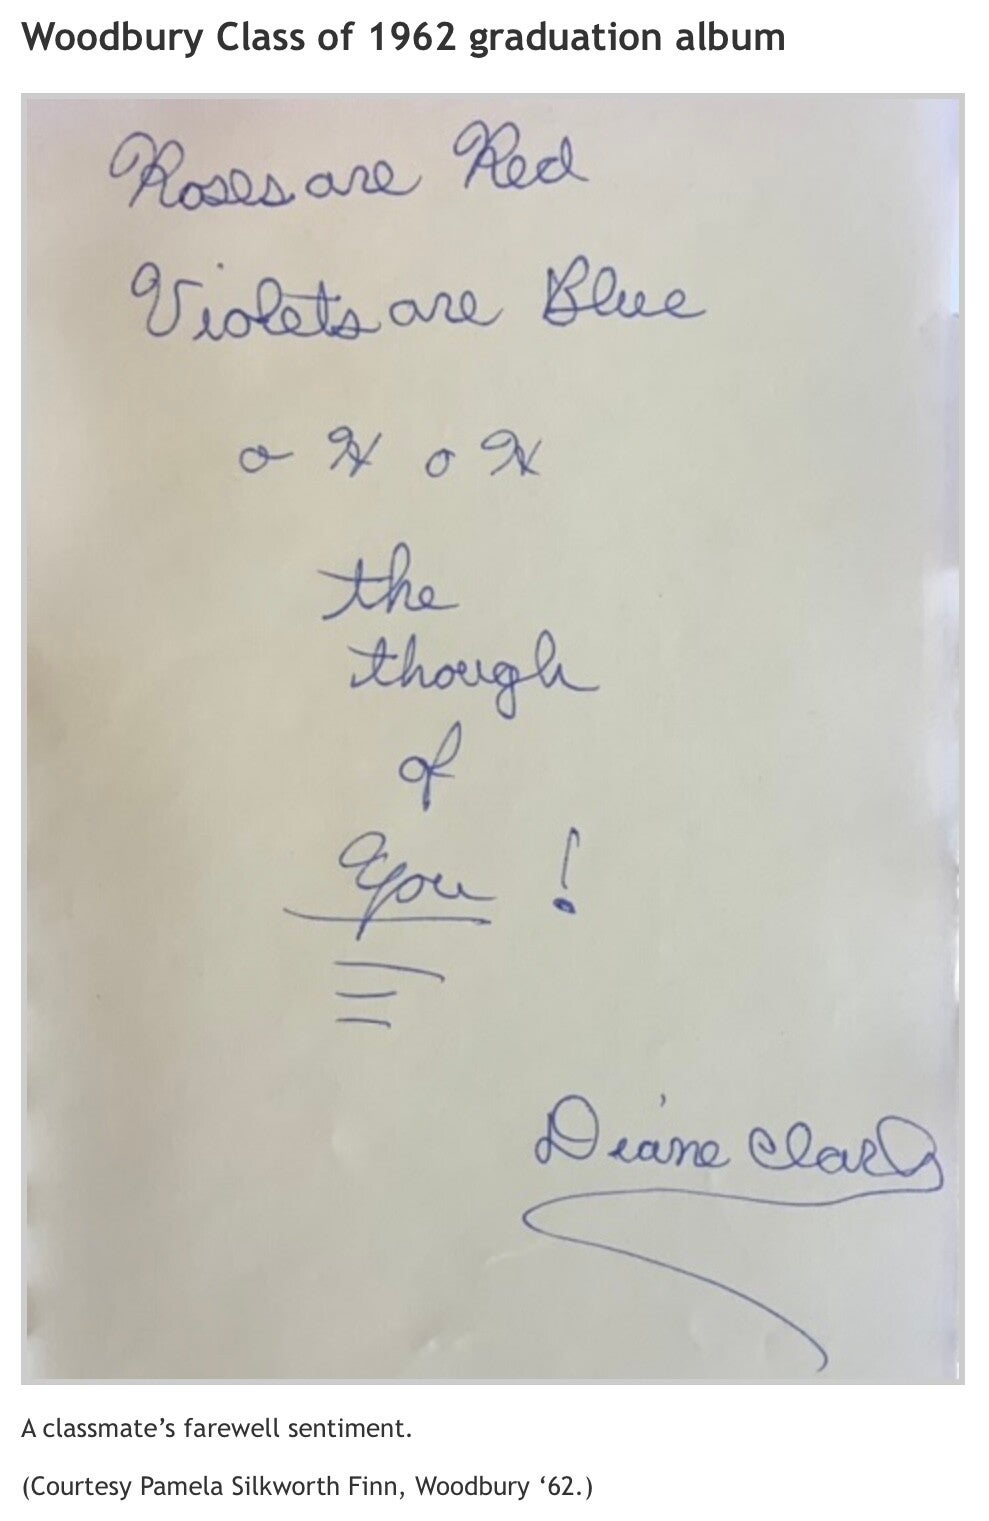 Woodbury Class of 1962 graduation album
Roses are Red
Violets are Blue
o X o X
the
though
of
You !
Diane Clark
A classmate’s farewell sentiment.
(Courtesy Pamela Silkworth Finn, Woodbury ‘62.)